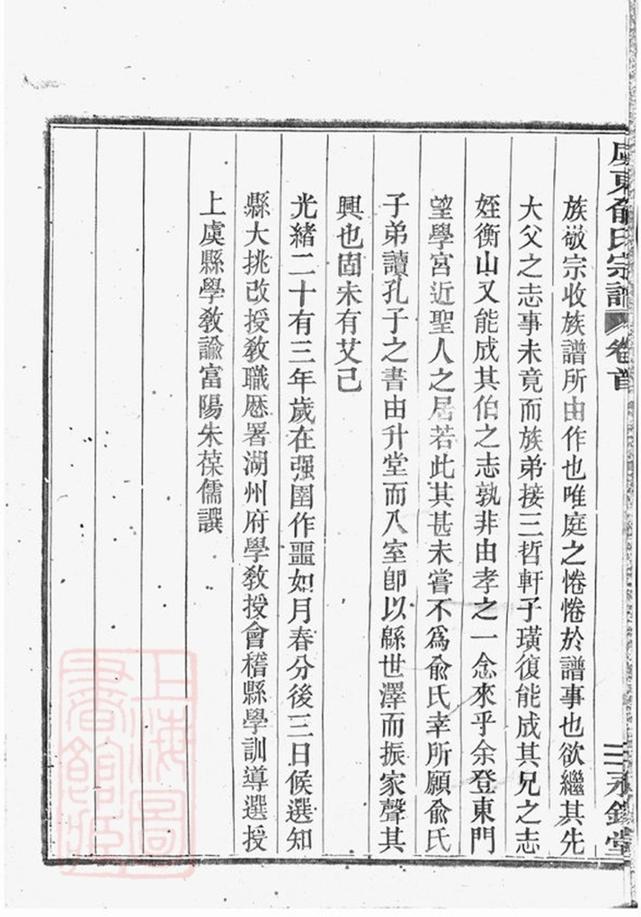 虞東俞氏宗譜 卷首 三 永錫堂
族敬宗收族譜所由作也唯庭之惓惓於譜事也欲繼其先
大父之志事未竟而族弟接三哲軒子璜復能成其兄之志
姪衡山又能成其伯之志孰非由孝之一念來乎余登東門
望學宮近聖人之居若此其甚未嘗不爲俞氏幸所願俞氏
子弟讀孔子之書由升堂而入室卽以緜世澤而振家聲其
興也固未有艾已
光緒二十有三年歲在强圉作噩如月春分後三日候選知
縣大挑改授教職歷署湖州府學教授會稽縣學訓導選授
上虞縣學教諭富陽朱葆儒譔
上海圖
書館藏